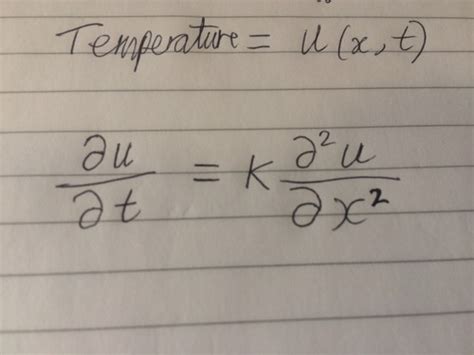 Temperature = u(x,t)
∂u/∂t = K ∂²u/∂x²